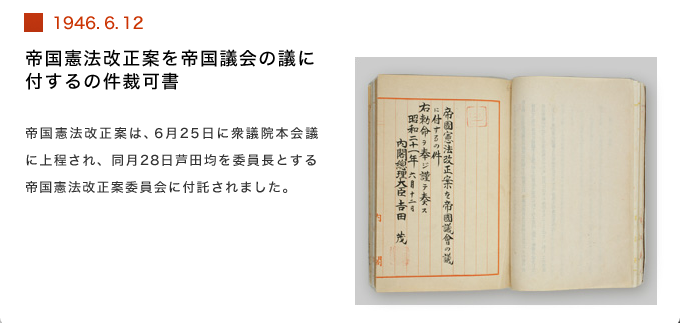 1946.6.12
帝国憲法改正案を帝国議会の議に
付するの件裁可書
帝国憲法改正案は、6月25日に衆議院本会議
に上程され、同月28日芦田均を委員長とする
帝国憲法改正案委員会に付託されました。
帝國憲法改正案を帝國議會の議
に付するの件
右勅命ヲ奉ジ謹テ奏ス
昭和二十一年六月十二日
内閣總理大臣吉田茂
内閣